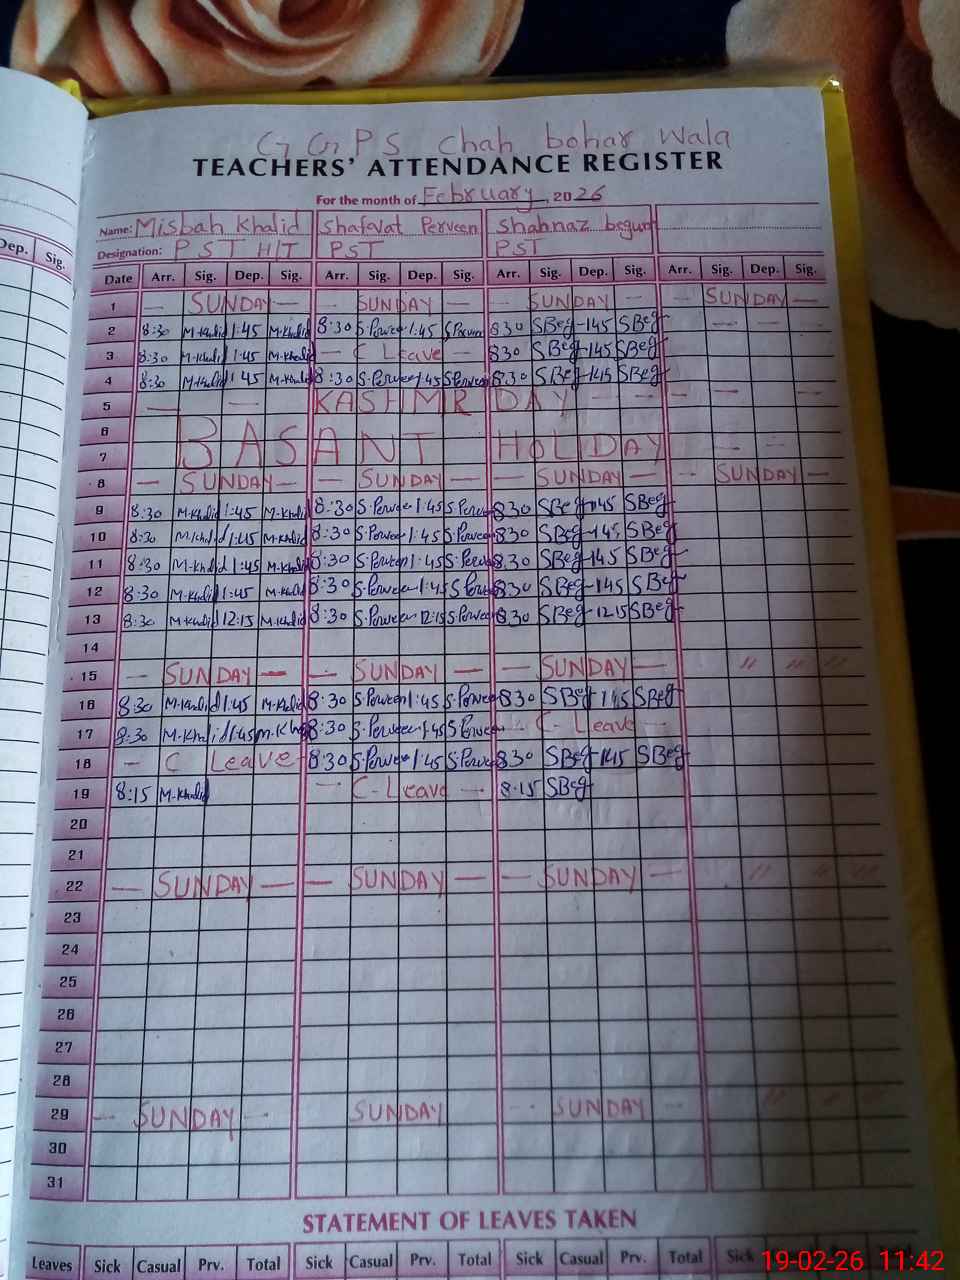 G G P S Chah bohar wala
TEACHERS' ATTENDANCE REGISTER
For the month of February, 2026
Name: Misbah Khalid Shafaat Perveen Shahnaz begum
Designation: PST H/T PST PST
Dep. Sig. Date Arr. Sig. Dep. Sig. Arr. Sig. Dep. Sig. Arr. Sig. Dep. Sig. Arr. Sig. Dep. Sig.
1 — SUNDAY — — SUNDAY — — SUNDAY — — SUNDAY —
2 8:30 M.Khalid 1:45 M.Khalid 8:30 S.Perveen 1:45 S.Perveen 830 SBeg 145 SBeg
3 8:30 M.Khalid 1:45 M.Khalid — C Leave — 830 SBeg 145 SBeg
4 8:30 M.Khalid 1:45 M.Khalid 8:30 S.Perveen 1:45 S.Perveen 8:30 SBeg 145 SBeg
5 — — KASHMR DAY — — — —
6
BASANT HOLIDAY
7
8 — SUNDAY — — SUNDAY — — SUNDAY — — SUNDAY —
9 8:30 M.Khalid 1:45 M.Khalid 8:30 S.Perveen 1:45 S.Perveen 830 SBeg 145 SBeg
10 8:30 M.Khalid 1:45 M.Khalid 8:30 S.Perveen 1:45 S.Perveen 830 SBeg 145 SBeg
11 8:30 M.Khalid 1:45 M.Khalid 8:30 S.Perveen 1:45 S.Perveen 8.30 SBeg 145 SBeg
12 8:30 M.Khalid 1:45 M.Khalid 8:30 S.Perveen 1:45 S.Perveen 830 SBeg 145 SBeg
13 8:30 M.Khalid 12:15 M.Khalid 8:30 S.Perveen 12:15 S.Perveen 830 SBeg 1215 SBeg
14
15 — SUNDAY — — SUNDAY — — SUNDAY — " " "
16 8:30 M.Khalid 1:45 M.Khalid 8:30 S.Perveen 1:45 S.Perveen 830 SBeg 145 SBeg
17 8:30 M.Khalid 1:45 M.Khalid 8:30 S.Perveen 1:45 S.Perveen — C-Leave —
18 — C Leave — 8:30 S.Perveen 1:45 S.Perveen 830 SBeg 145 SBeg
19 8:15 M.Khalid — C-Leave — 8:15 SBeg
20
21
22 — SUNDAY — — SUNDAY — — SUNDAY — " " "
23
24
25
26
27
28
29 — SUNDAY — SUNDAY — SUNDAY — " " "
30
31
STATEMENT OF LEAVES TAKEN
Leaves Sick Casual Prv. Total Sick Casual Prv. Total Sick Casual Prv. Total Sick
19-02-26 11:42